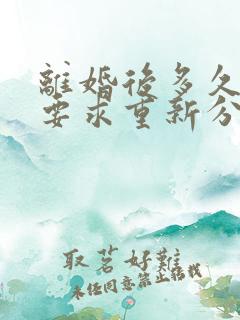 離婚後多久
要求重新分
取茗好難
未经同意禁止搭载